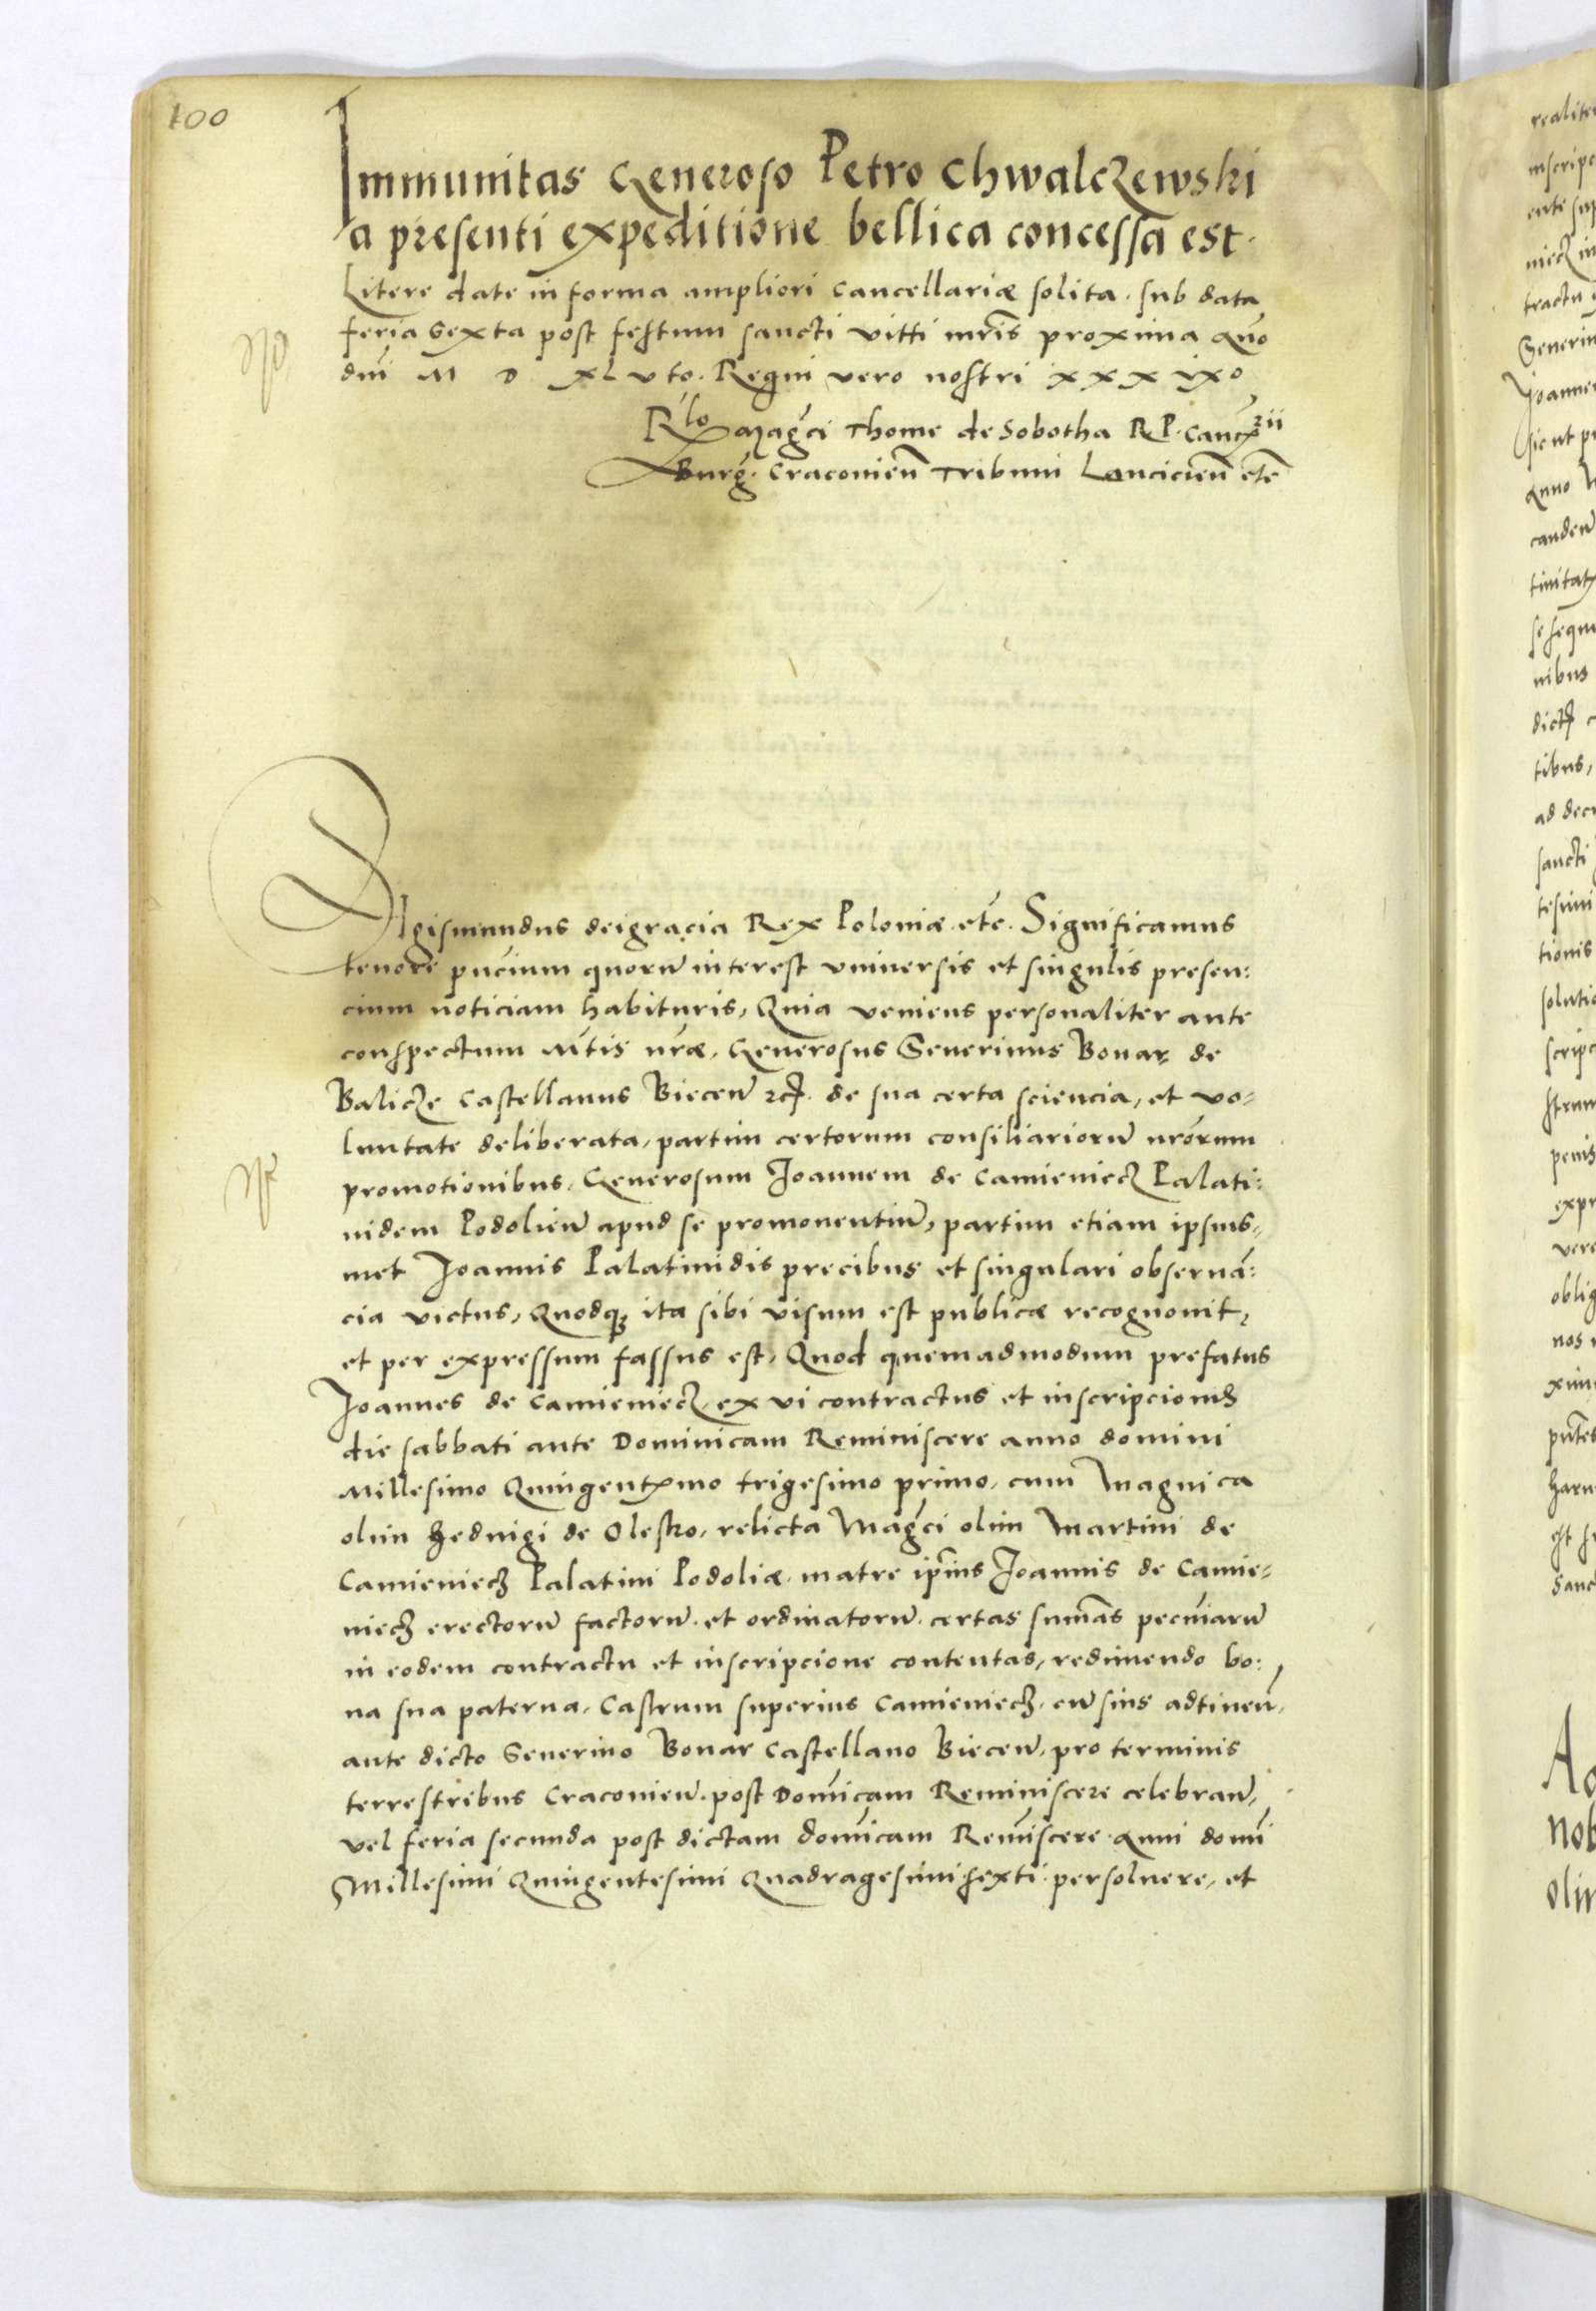 100
Immunitas Generoso Petro Chwalczewski
a presenti expeditione bellica concessa est.
Litere date in forma ampliori Cancellariæ solita. sub data
feria Sexta post festum sancti vitti mrĩs proxima Año
dñi M D XL vto. Regni vero nostri xxxixo
Rlo Magci Thome de Sobotha R P. Cancrii
Burg. Craconieñ Tribuni Lanciciеñ etc̃
Sigismundus dei gracia Rex Poloniæ. etc̃. Significamus
tenore pñcium quorũ interest vniversis et singulis presen:
cium noticiam habituris, Quia veniens personaliter ante
conspectum Mtis nr̃æ, Generosus Severinus Bonar de
Balicze Castellanus Bieceñ etc. de sua certa sciencia, et vo-
luntate deliberata, partim certorum consiliariorũ nr̃orum
promotionibus, Generosum Joannem de Camieniecz Palati:
nidem Podolieñ apud se promonentiũ, partim etiam ipsius-
met Joannis Palatinidis precibus et singulari obseruã:
cia victus, Quodq3 ita sibi visum est publicæ recognouit,
et per expressum fassus est, Quod quemadmodum prefatus
Joannes de Camieniecz, ex vi contractus et inscripcionis
die sabbati ante Dominicam Reminiscere anno domini
Millesimo Quingentesimo trigesimo primo, cum Magnifica
olim Hedvigi de Olesko, relicta Magci olim Martini de
Camieniecz Palatini Podoliæ, matre ip̃ius Joannis de Camie-
niecz erectorũ factorũ. et ordinatorũ. certas sum̃as pecuniarũ
in eodem contractu et inscripcione contentas, redimendo bo:
na sua paterna, Castrum superius Camieniecz. cũ suis adtineñ,
ante dicto Severino Bonar Castellano Bieceñ, pro terminis
terrestribus Craconieñ. post Domĩcam Reminiscere celebrañ,
vel feria secunda post dictam domĩcam Remĩscere Anni domĩ
Millesimi Quingentesimi Quadragesimi sexti. persoluere, et